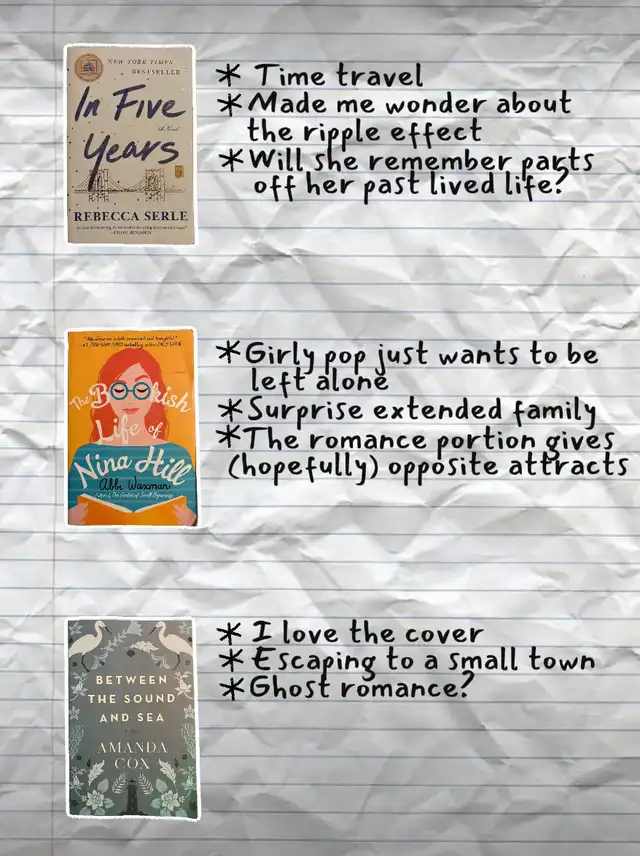 NEW YORK TIMES
BESTSELLER
In Five
Years
REBECCA SERLE
* Time travel
* Made me wonder about
the ripple effect
* Will she remember parts
off her past lived life?
The Bookish
Life of
Nina Hill
Abbi Waxman
* Girly pop just wants to be
left alone
* Surprise extended family
* The romance portion gives
(hopefully) opposite attracts
BETWEEN
THE SOUND
AND SEA
AMANDA
COX
* I love the cover
* Escaping to a small town
* Ghost romance?